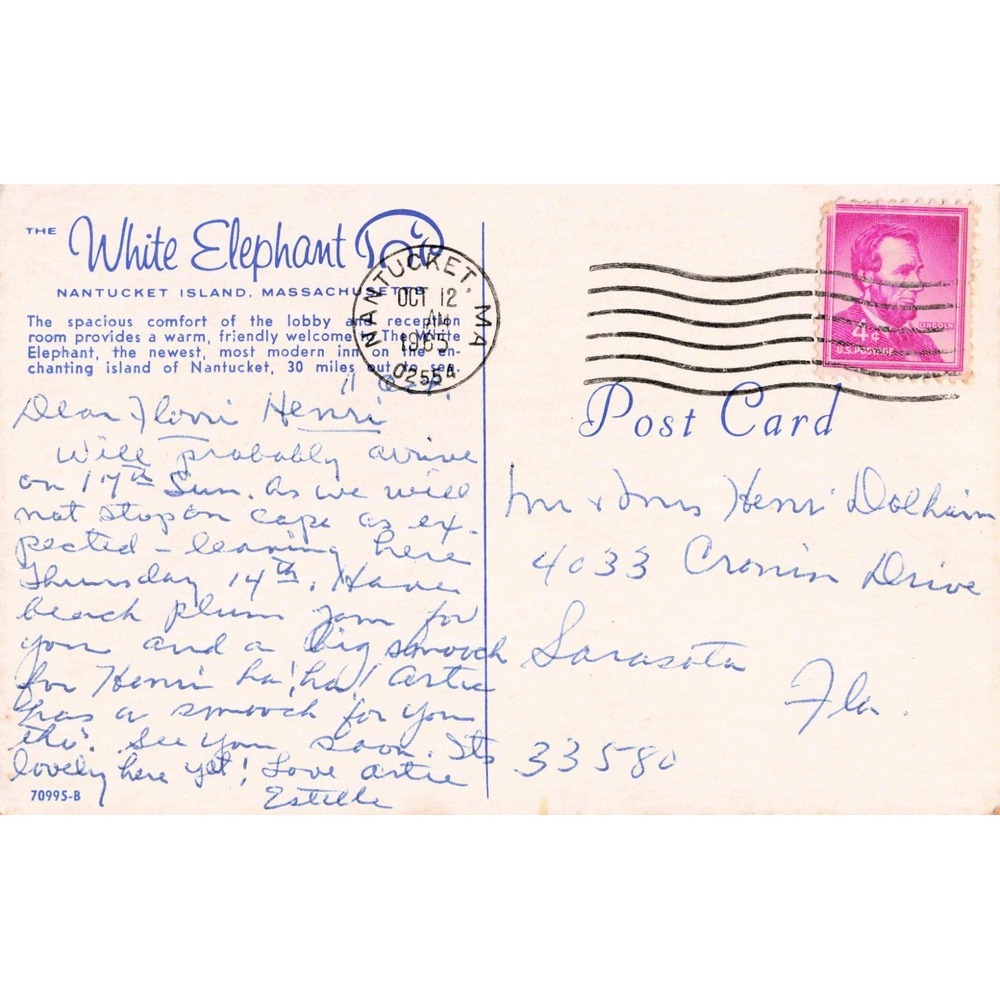 THE White Elephant Inn
NANTUCKET ISLAND, MASSACHUSETTS
The spacious comfort of the lobby and reception
room provides a warm, friendly welcome. The White
Elephant, the newest, most modern inn on the en-
chanting island of Nantucket, 30 miles out to sea.
11 Oct.
Dear Florri Henri
Will probably arrive
on 17th Sun. As we will
not stop on cape as ex-
pected – leaving here
Thursday 14th. Have
beach plum jam for
you and a big smooch
for Henri ha! ha! Artie
has a smooch for you
tho'. See you soon. Its
lovely here yet! Love Artie
Estelle
70995-B
NANTUCKET, MA
OCT 12
AM
1965
02554
LINCOLN
4¢
U.S. POSTAGE
Post Card
Mr & Mrs Henri
4033 Cronin Drive
Sarasota
Fla.
33580